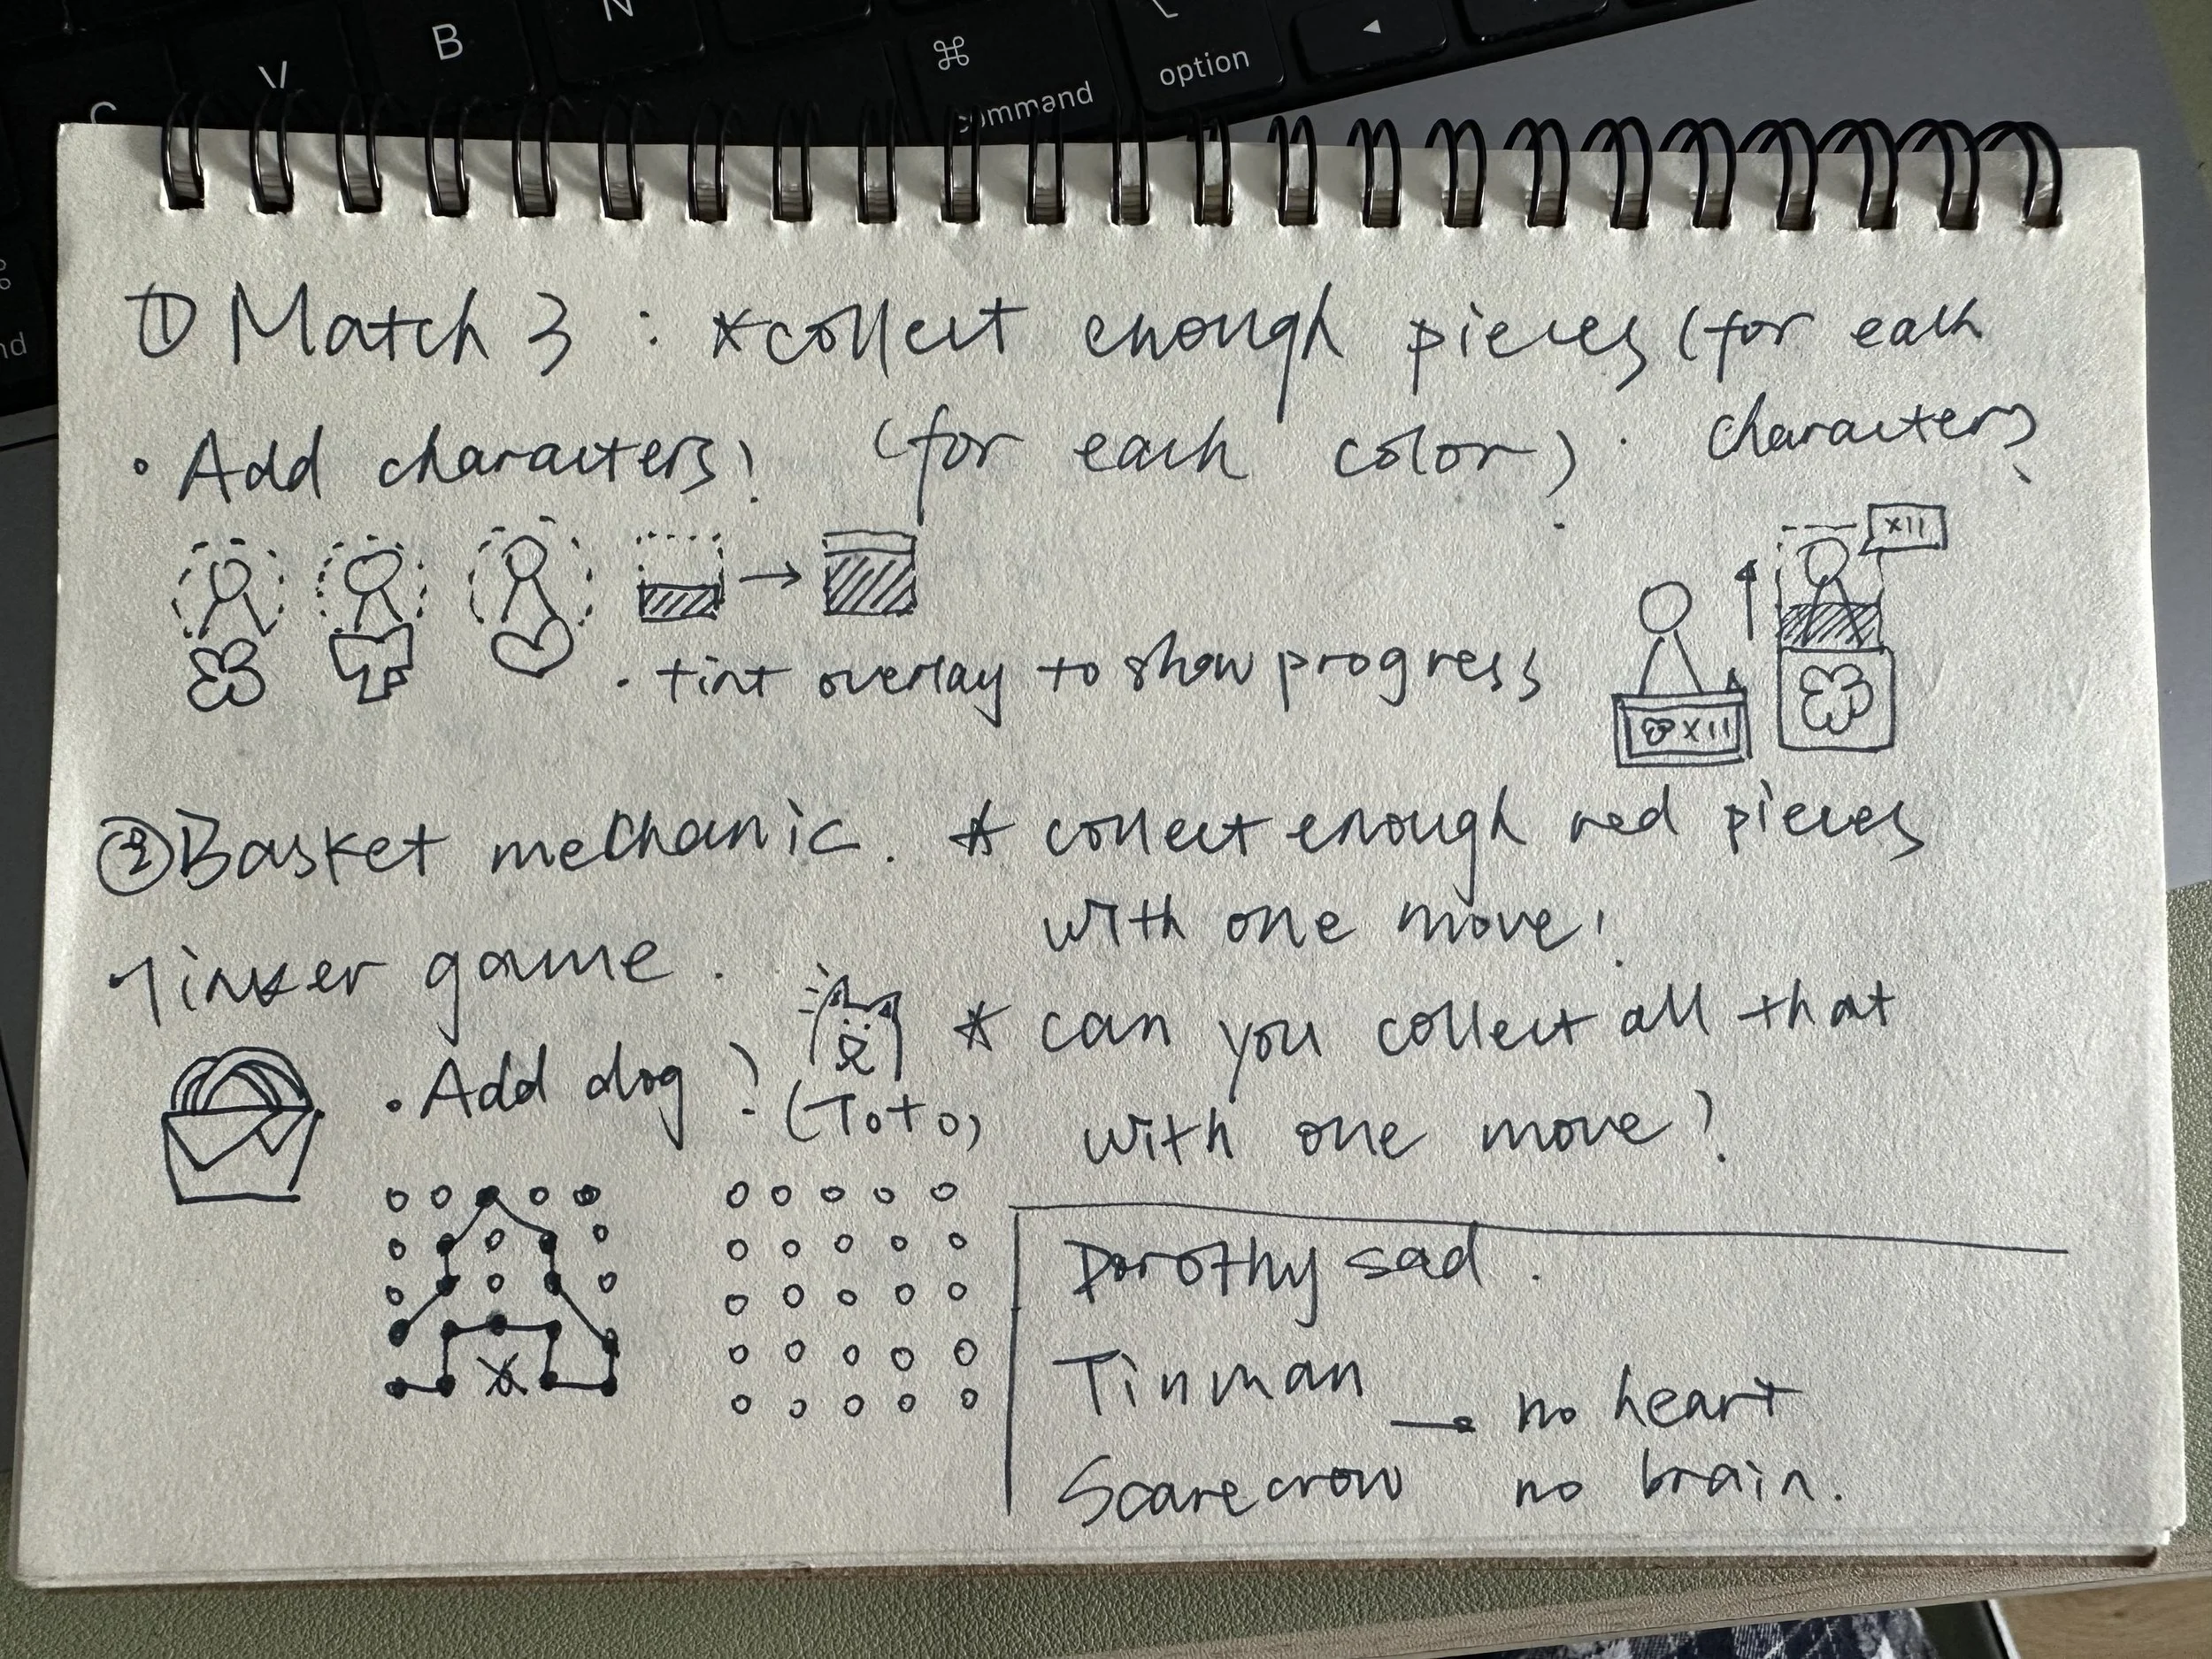 V
B
N
⌘
command
option
◄
nd
① Match 3 : *collect enough pieces (for each
• Add characters? (for each color)? characters?
x11
• tint overlay to show progress
x11
② Basket mechanic. * collect enough red pieces
with one move!
Tinker game.
* can you collect all that
• Add dog? (Toto)
with one move?
Dorothy sad.
Tinman → no heart
Scarecrow no brain.